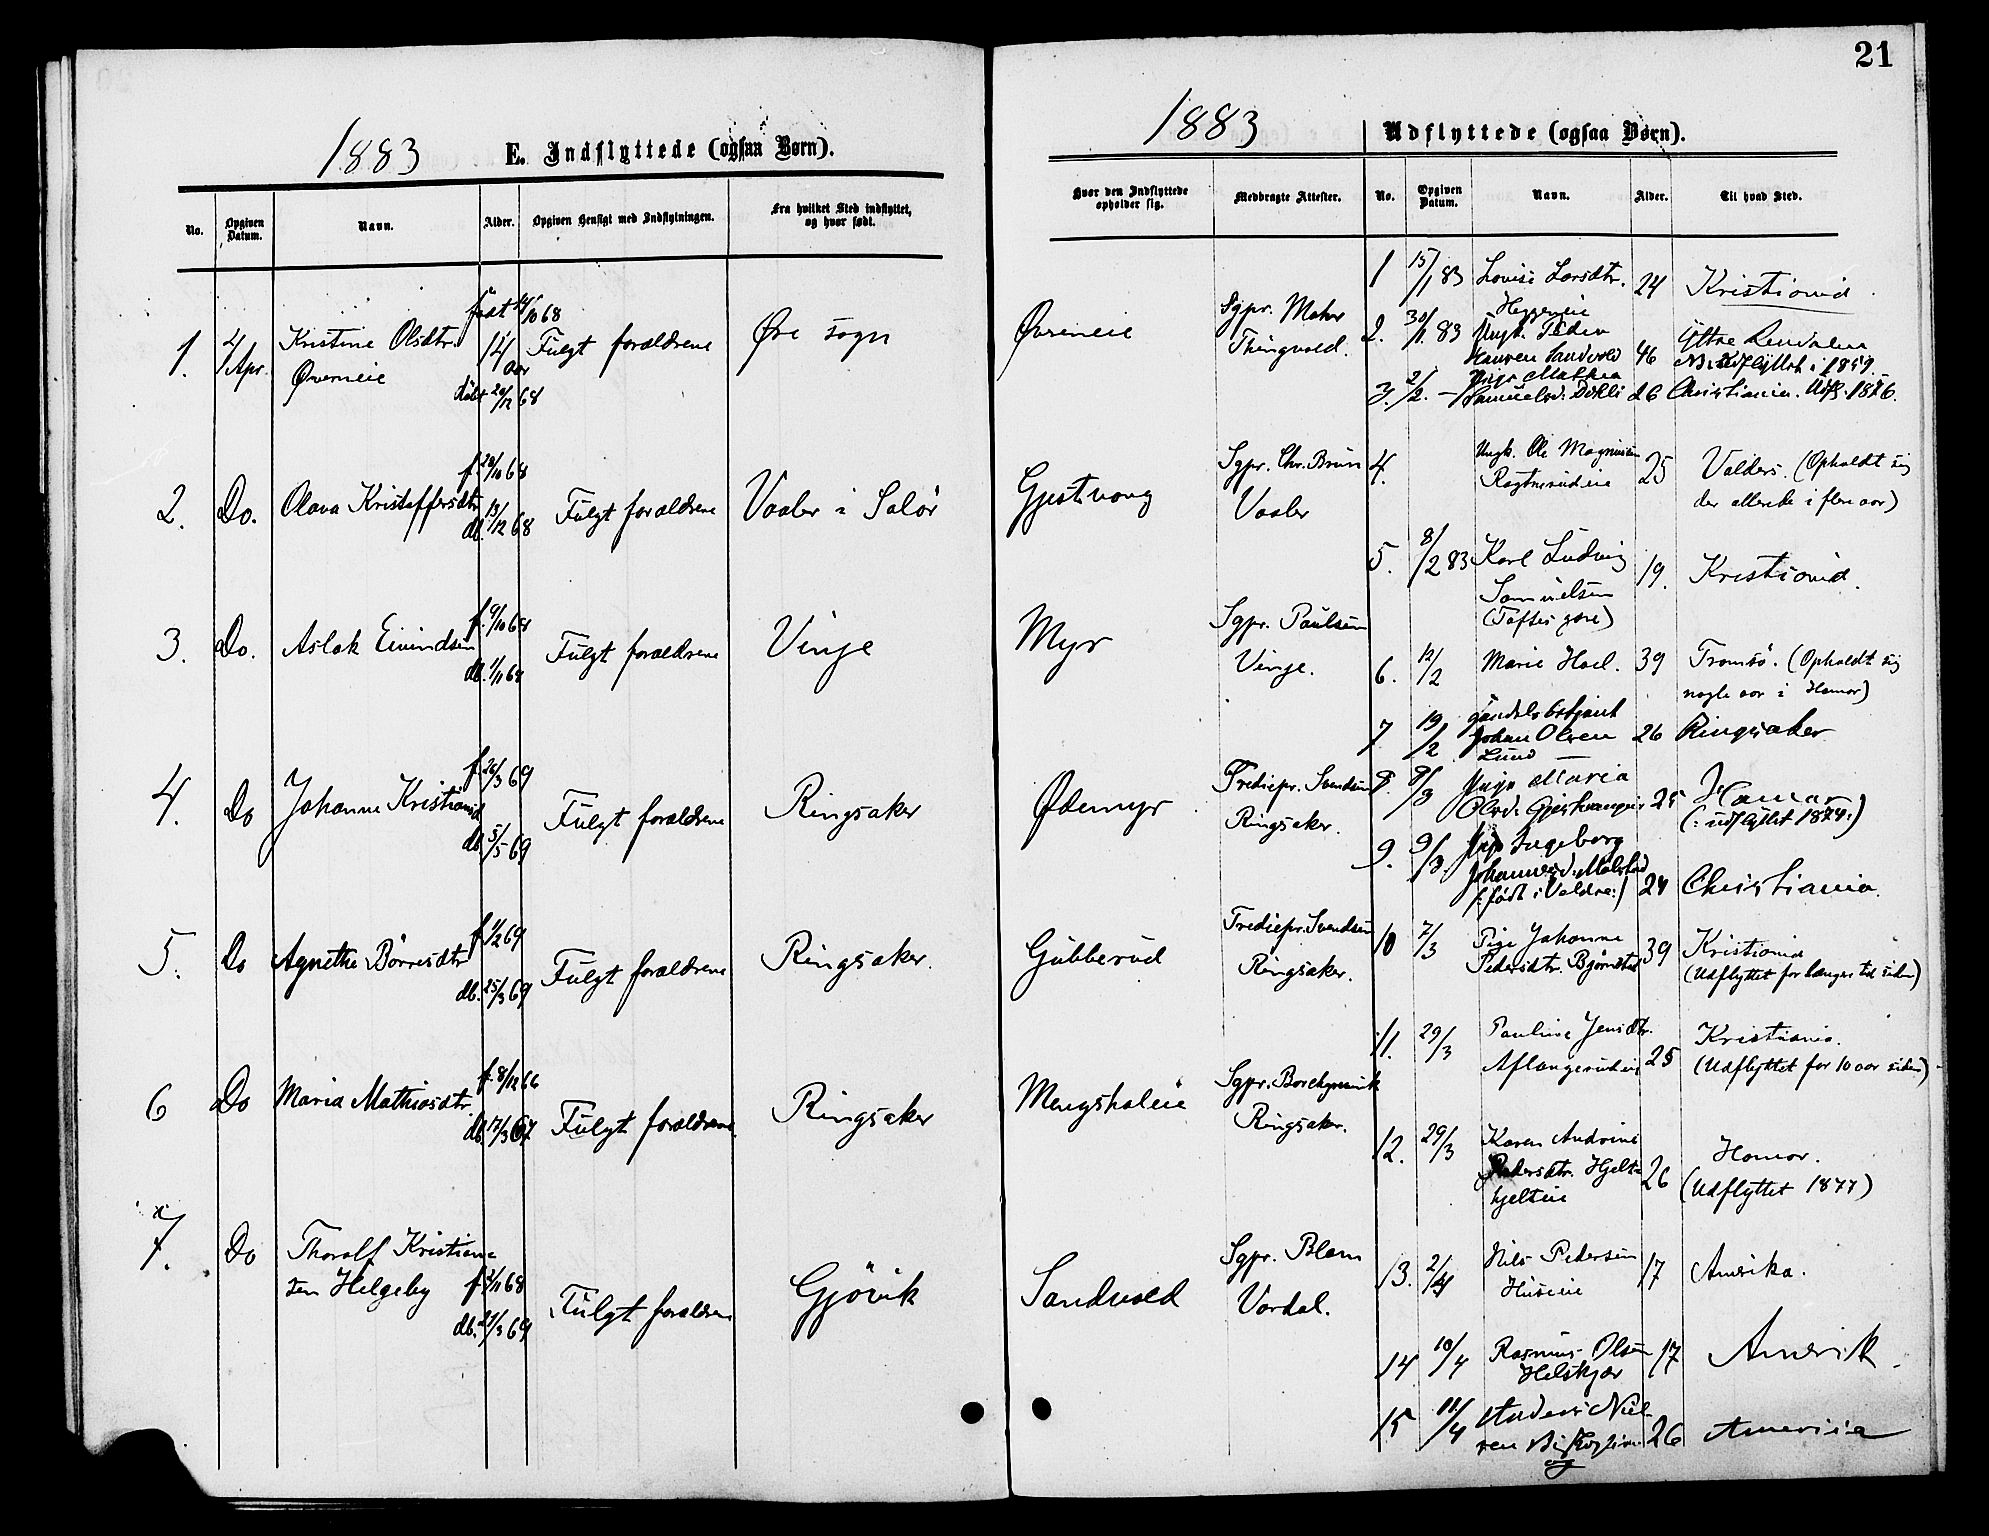 21
1883 E. Indflyttede (ogsaa Børn).
No.
Opgiven Datum.
Navn.
Alder.
Opgiven Hensigt med Indflytningen.
Fra hvilket Sted indflyttet, og hvor født.
1. 2/4 Apr. Kristine Olsdtr. født 14/10 68 Fulgt forældrene Øre sogn
Øverneie 14 aar
døbt 20/12 68
2. Do. Olava Kristoffersdtr f. 28/10 68 Fulgt forældrene Vaaler i Solør
db. 13/12 68
3. Do. Aslak Eivindsen f. 9/10 68 Fulgt forældrene Vinje
db. 1/11 68
4. Do Johanne Kristiansd f. 26/3 69 Fulgt forældrene Ringsaker
db. 5/5 69
5. Do Agnethe Børresdtr f. 1/2 69 Fulgt forældrene Ringsaker.
db. 25/3 69
6 Do Maria Mathiasdtr. f. 8/12 66 Fulgt forældrene. Ringsaker
db. 17/3 67
7. Do Thoralf Kristian-
sen Helgeby f. 3/11 68 Fulgt forældrene Gjøvik
db. 29/3 69
1883 Udflyttede (ogsaa Børn).
Hvor den Indflyttede opholder sig.
Medbragte Attester.
No.
Opgiven Datum.
Navn.
Alder.
Til hvad Sted.
Øverneie Sgpr. Mohr
Thingvold.
Gjestvang Sgpr. Chr. Bruun
Vaaler
Myr Sgpr. Paulsen
Vinje.
Ødemyr Trediepr. Svendsen
Ringsaker.
Gubberud Trediepr. Svendsen
Ringsaker.
Mengshøleie Sgpr. Borchgrevink
Ringsaker.
Sandvold Sgpr. Blom
Vardal.
1 15/1 83 Lovise Larsdtr. 24 Kristiania.
2. 30/1 83 Ungk. Peder
Hansen Sandvold 46 Ytre Rendalen
NB. Udflyttet i 1859.
3. 2/2. - Pige Mathea
Samuelsd. Dihli 26 Christiania. Udfl. 1876.
4. Ungk. Ole Magnusen
25 Valders. (Opholdt sig
der allerede i flere aar)
5. 8/2 83 Karl Ludvig
Samuelsen 19. Kristiania.
(Toftes gave)
6. 12/2 Marie Hoel. 39 Tromsø. (Opholdt sig
nogle aar i Hamar)
7 19/2 Handelsbetjent
Johan Olsen 26 Ringsaker
Lund
8. 9/3 Pige Maria
Olsd. Gjestvangeie 25 Hamar
(: udflyttet 1874:)
9. 9/3. Pige Ingeborg
Johannesd. Molstad
(: født i Veldre:) 24 Christiania.
10 7/3 Pige Johanne
Pedersdtr. Bjørnstad 39 Kristiania
(Udflyttet for længere tid siden)
11. 29/3 Pauline Jensdtr.
Aflangerudeie 25 Kristiania.
(Udflyttet for 10 aar siden)
12. 29/3 Karen Andrine
Pedersdtr. Hjelt-
hjelteie 26 Hamar.
(Udflyttet 1877)
13. 2/4 Nils Pedersen
Huseie 17 Amerika.
14 10/4 Rasmus Olsen
Helskjær 17 Amerik.
15 11/4 Anders Niel-
sen 26 Amerika